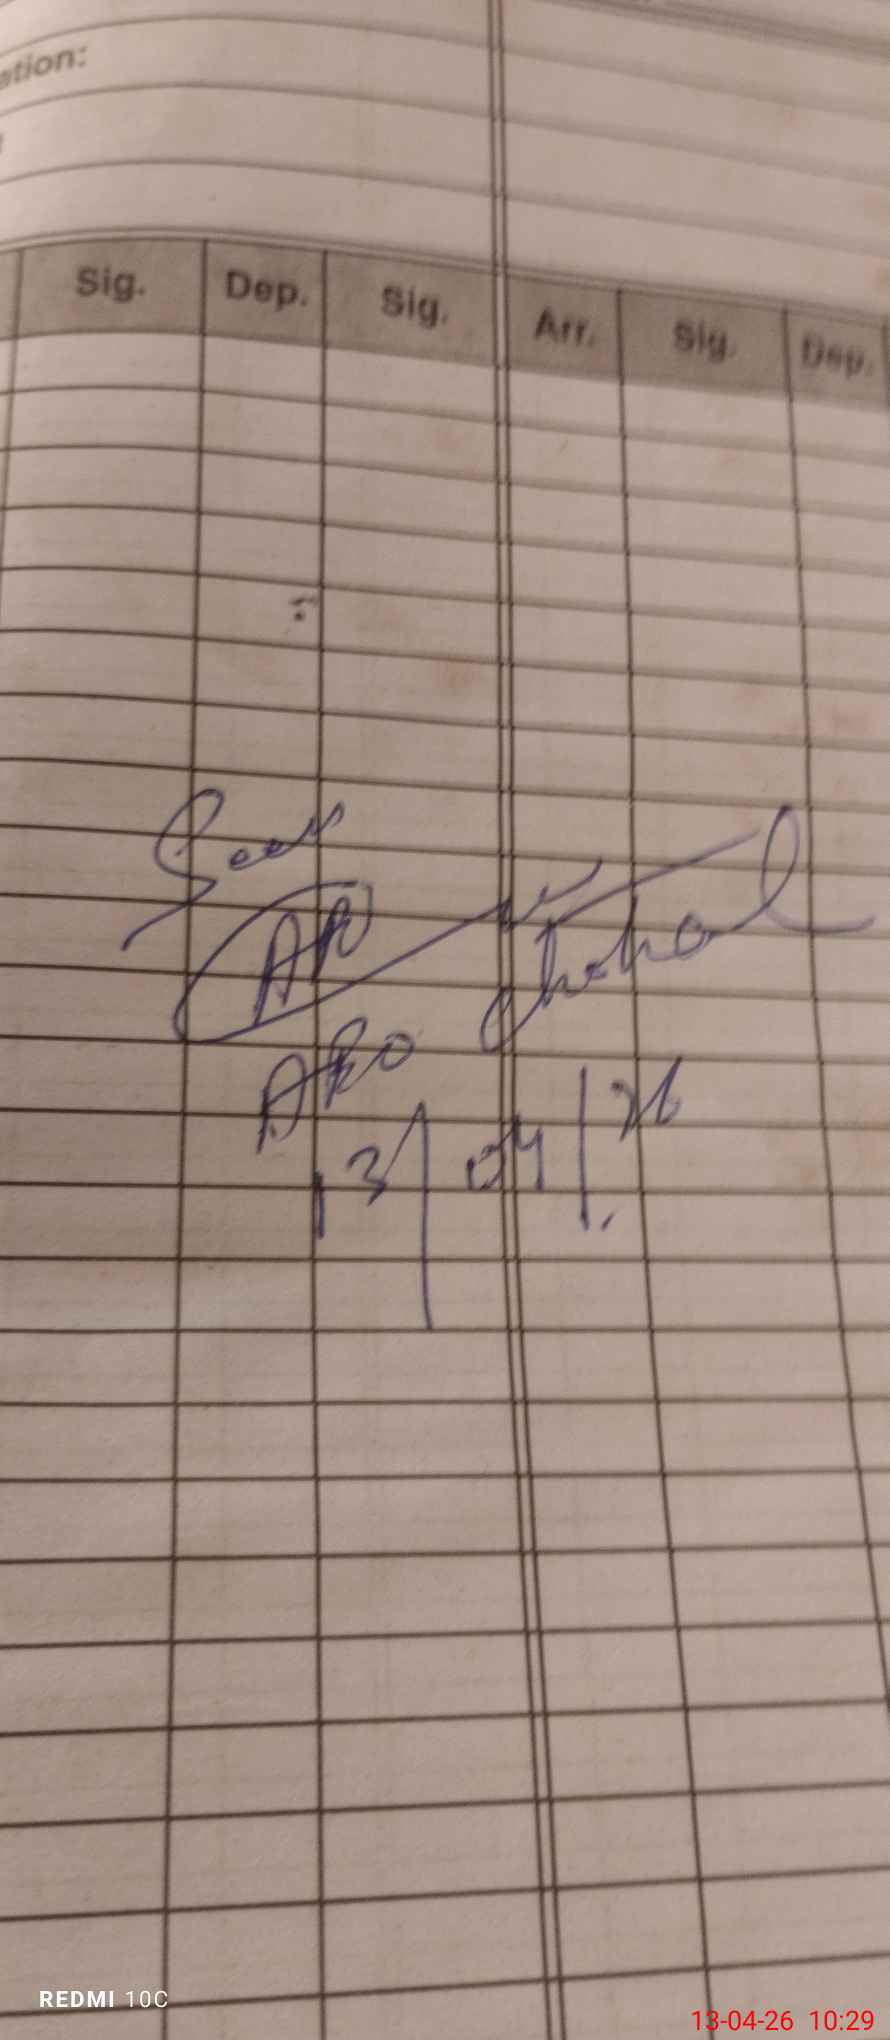 ation:
Sig. Dep. Sig. Arr. Sig. Dep.
Seen
ARO Chohal
13/04/26
REDMI 10C
13-04-26 10:29